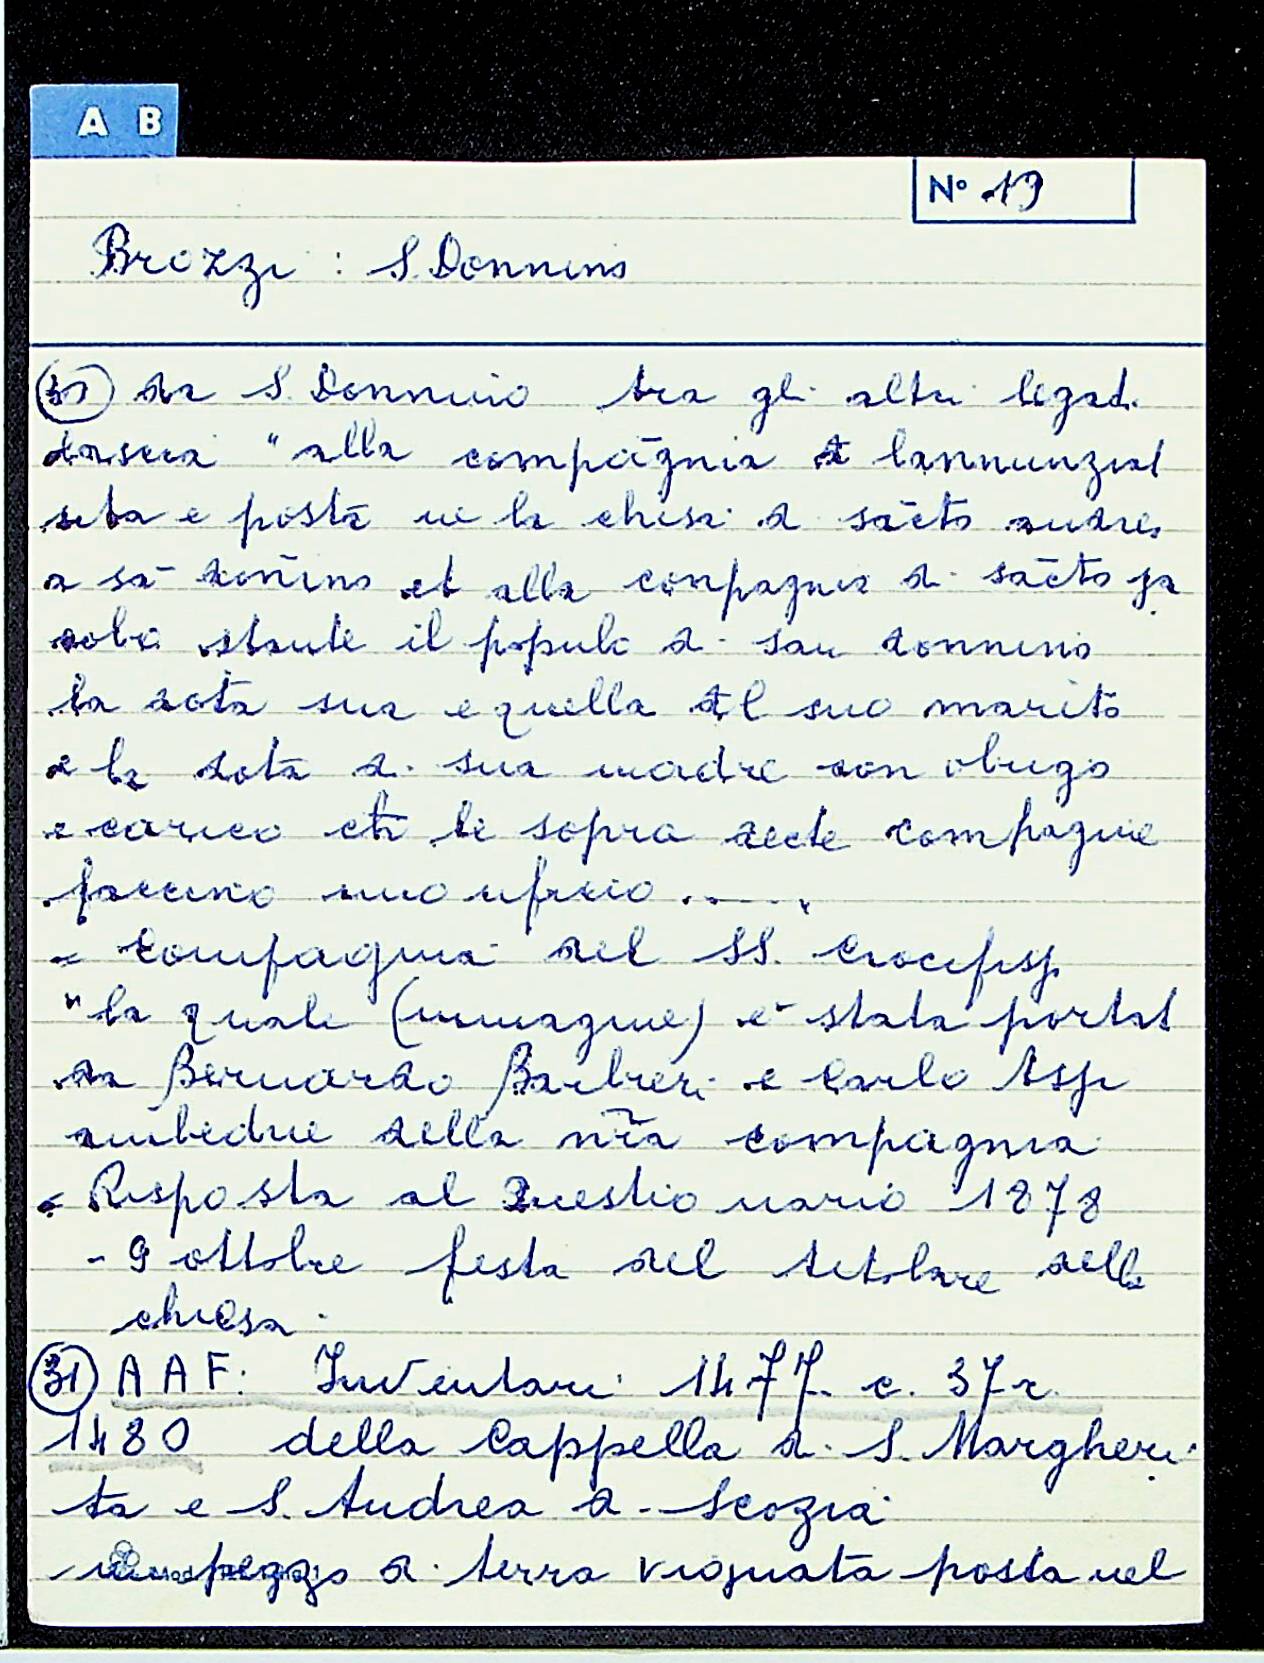 A B
N° 19
Brozzi : S. Donnino
da S. Donnino tra gli altri legati
lascia "alla compāgnia di lannunziat
sita e postā ne la chiesa di sācto andrea
a sā doñino et alla conpagnia di sācto ja
cobo stante il populo di san donnino
la dota sua e quella del suo marito
e la dota di sua madre con obrigo
e carico che le sopra decte compagnie
faccino uno uficio .....
- Compagnia del SS. Crocifisso
"la quale (immagine) è stata portat
da Bernardo Barbieri e Carlo
ambedue della nr̃a compagnia
- Risposta al Questionario 1878
- 9 ottobre festa del titolare della
chiesa.
(31) A A F. Inventari 1477. c. 37r.
1480 della Cappella di S. Margheri
ta e S. Andrea di Scozia
un pezzo di terra vignata posta nel